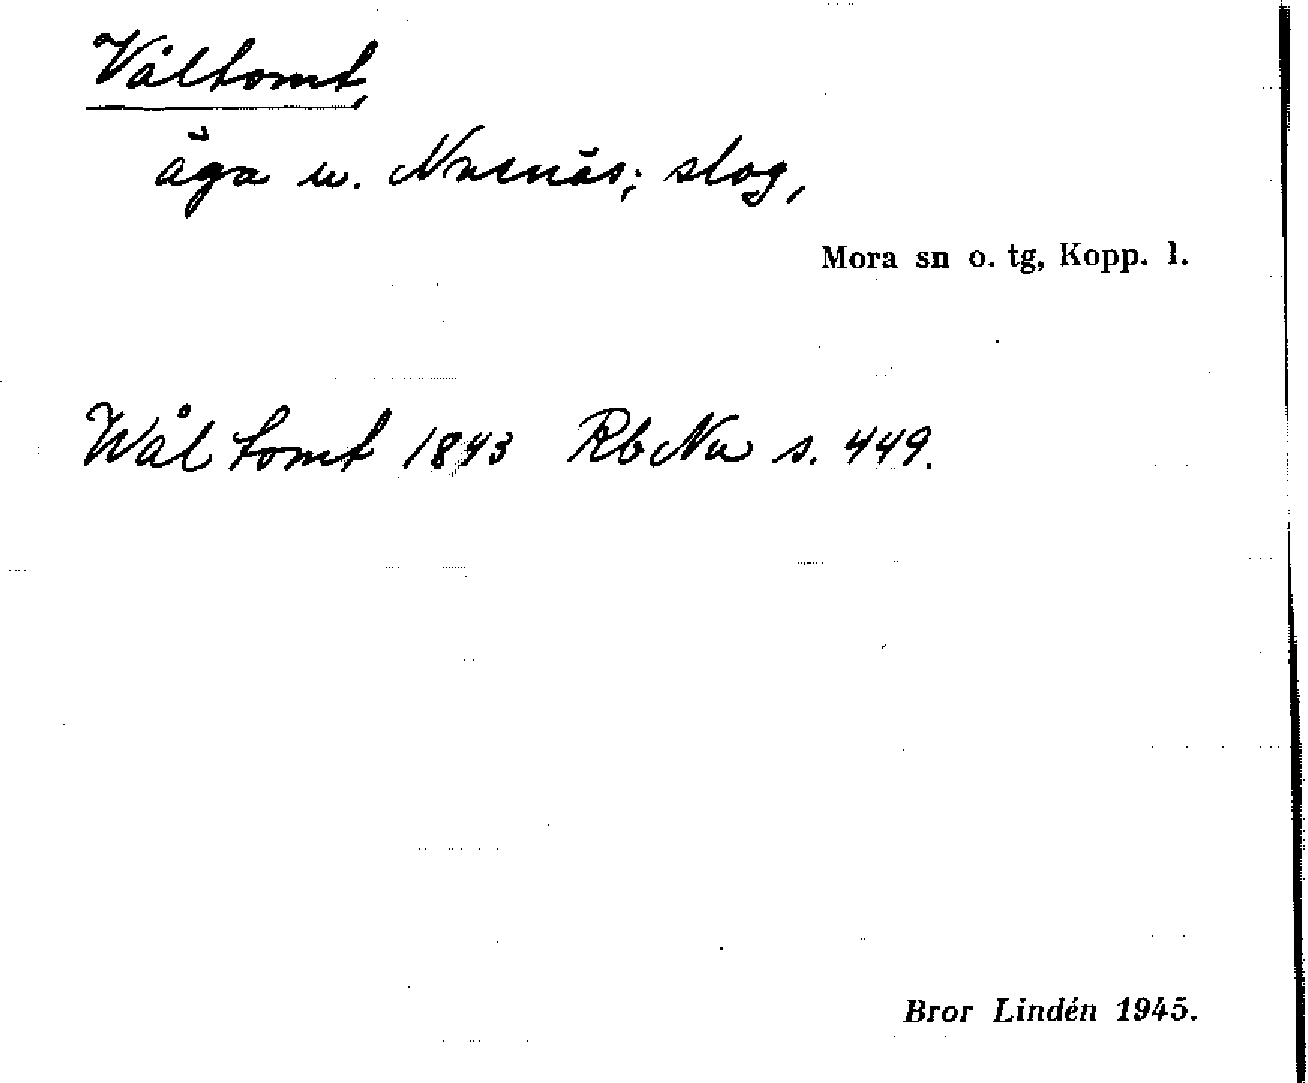 Våltomt,
äga u. Nusnäs; slog,
Mora sn o. tg, Kopp. l.
Wål tomt 1843 RbNu s. 449.
Bror Lindén 1945.